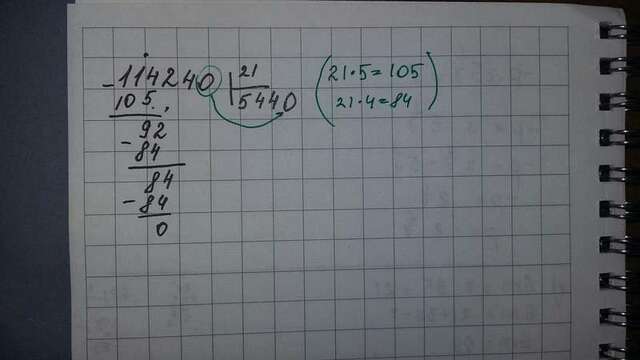 -114240 21 (21·5=105
105 5440 21·4=84)
92
-84
84
-84
0